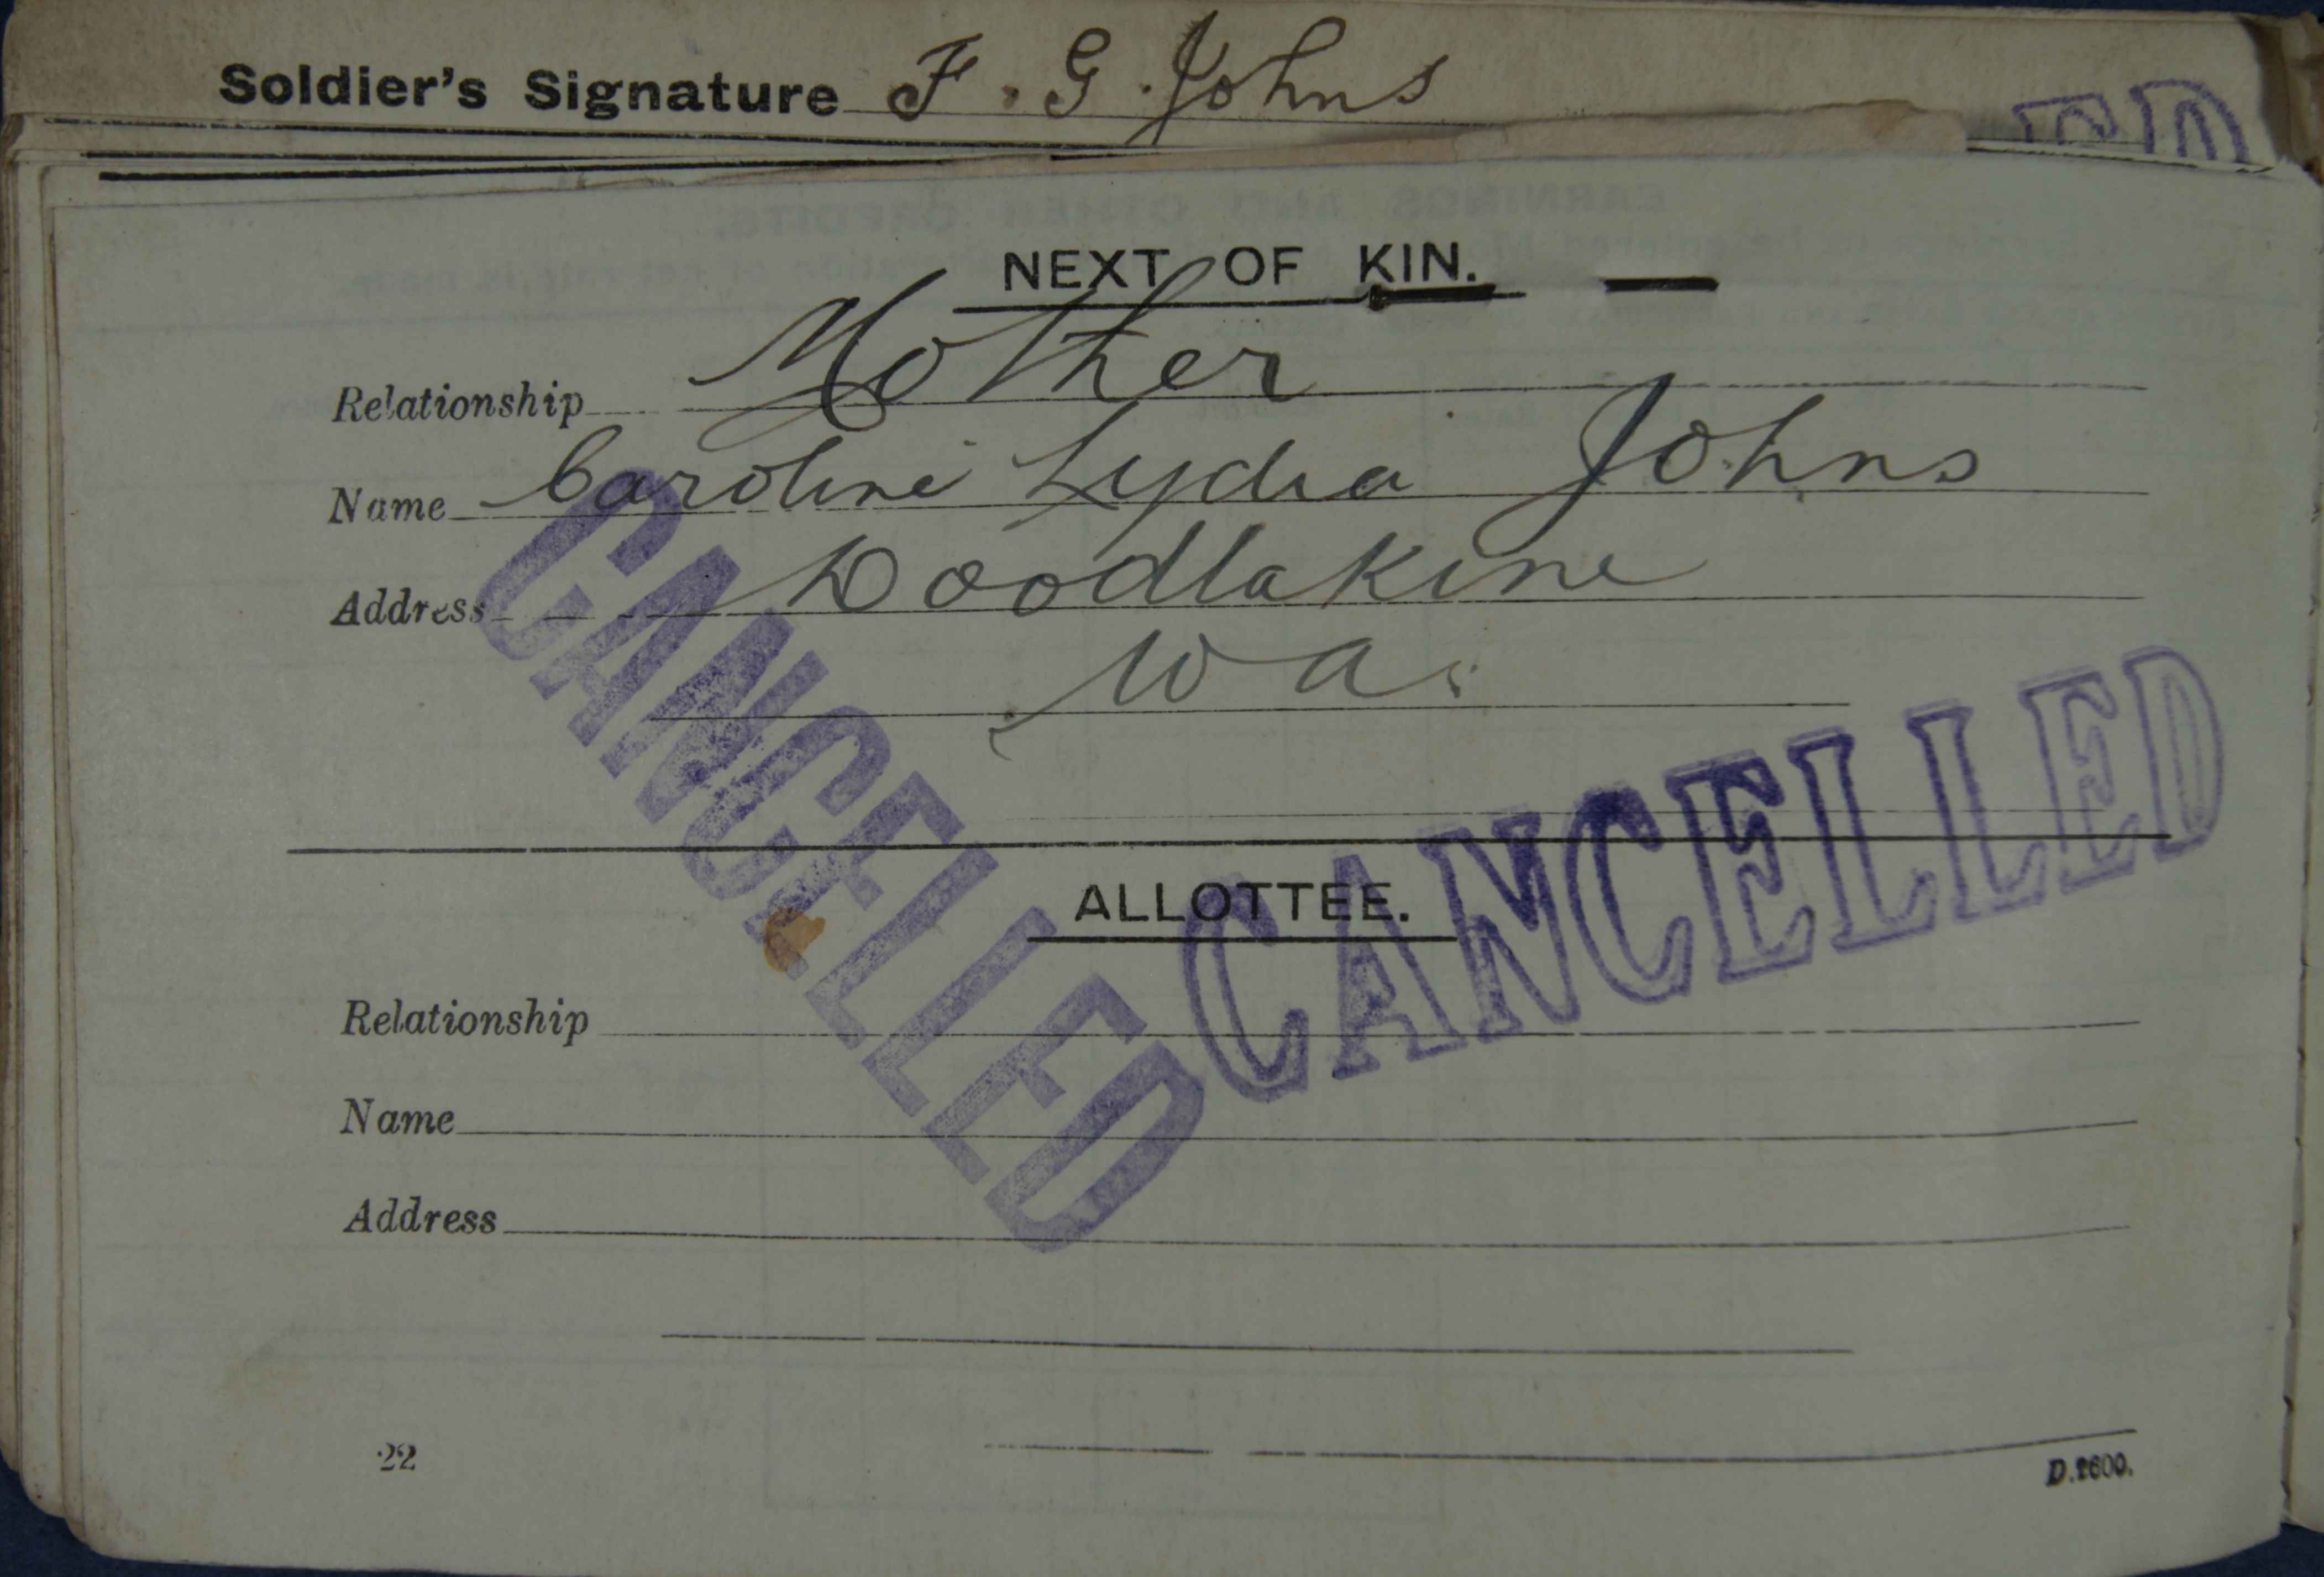 Soldier's Signature F. G. Johns
ED
NEXT OF KIN.
Relationship Mother
Name Caroline Lydia Johns
Address Doodlakine
WA.
CANCELLED
CANCELLED
ALLOTTEE.
Relationship
Name
Address
22
D.2600.